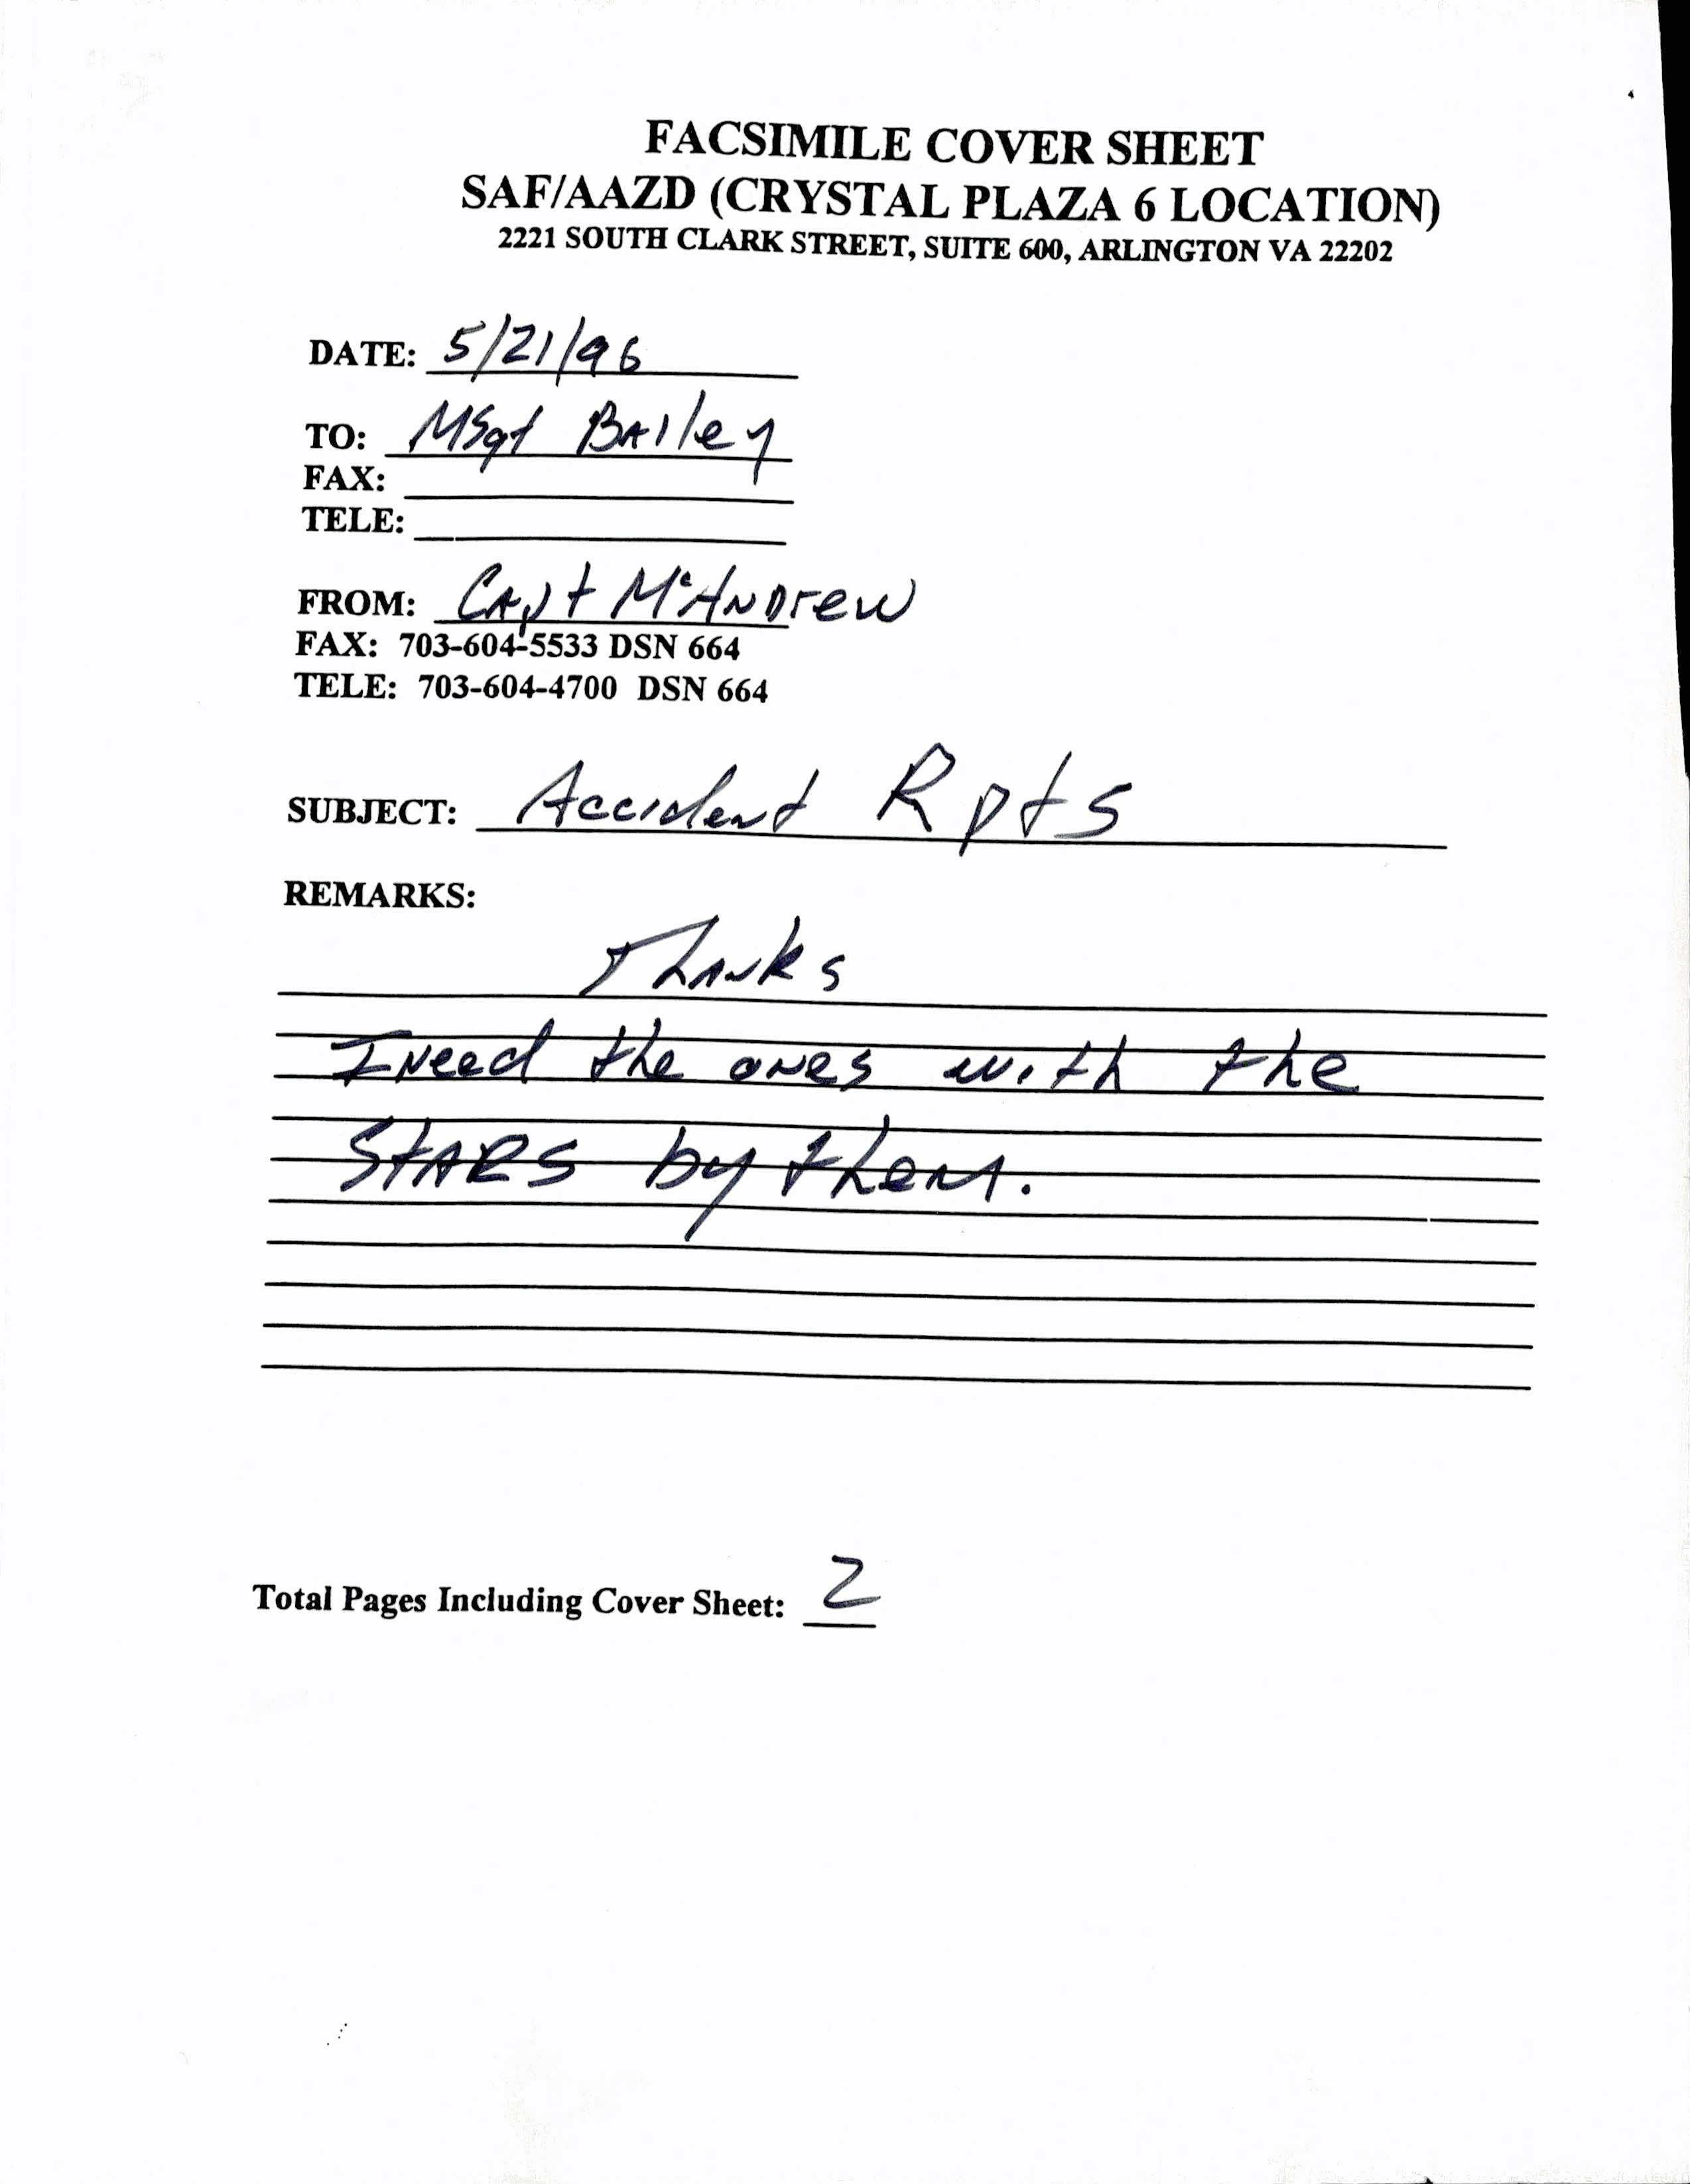 FACSIMILE COVER SHEET
SAF/AAZD (CRYSTAL PLAZA 6 LOCATION)
2221 SOUTH CLARK STREET, SUITE 600, ARLINGTON VA 22202
DATE: 5/21/96
TO: MSgt BAIley
FAX:
TELE:
FROM: CAPt McANDrew
FAX: 703-604-5533 DSN 664
TELE: 703-604-4700 DSN 664
SUBJECT: Accident Rpts
REMARKS:
Thanks
I Need the ones with the
STARS by them.
Total Pages Including Cover Sheet: 2